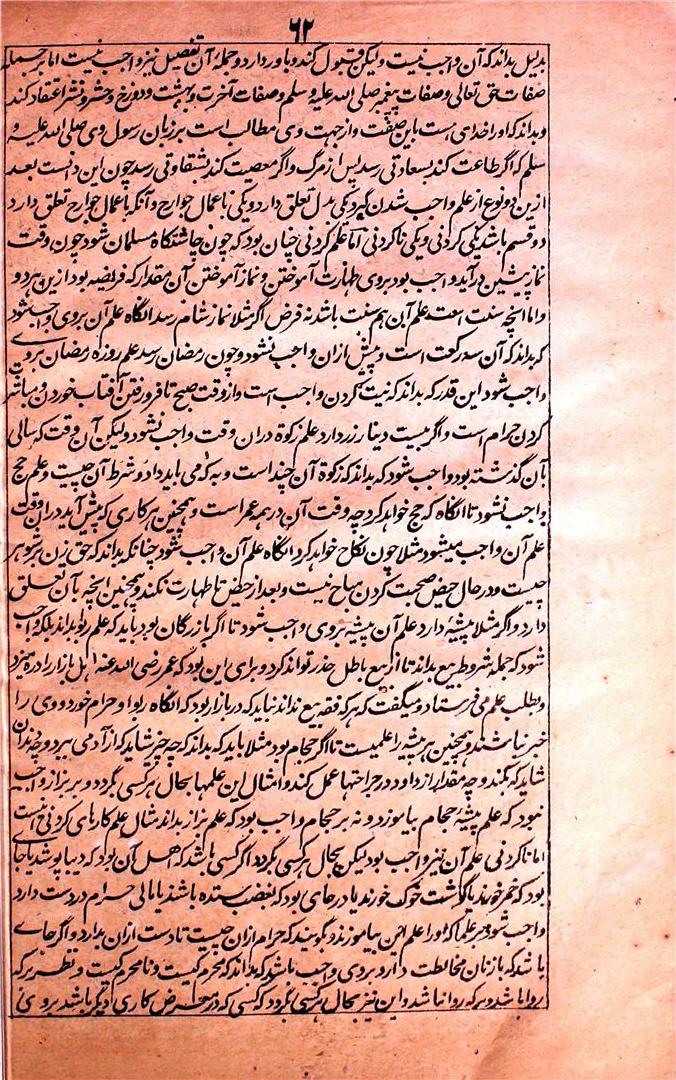 ۶۲
بدلیل بداند که آن واجب نیست ولیکن قبول کند و باور دارد و جمله آن تفصیل نیز واجب نیست اما بر جمله
صفات حق تعالی و صفات پیغمبر صلی الله علیه و سلم و صفات آخرت و بهشت و دوزخ و حشر و نشر اعتقاد کند
و بداند که او را خدای هست باین صفت و از جهت وی مطالب است بر زبان رسول وی صلی الله علیه و
سلم که اگر طاعت کند بسعادتی رسد پس از مرگ و اگر معصیت کند بشقاوتی رسد چون این دانست بعد
ازین دو نوع از علم واجب شدن گیرد یکی بدل تعلق دارد و یکی باعمال جوارح و آنکه باعمال جوارح تعلق دارد
دو قسم باشد یکی کردنی و یکی ناکردنی اما علم کردنی چنان بود که چون چاشتگاه مسلمان شود چون وقت
نماز پیشین درآید واجب بود بروی طهارت آموختن و نماز آموختن آن مقدار که فریضه بود ازین هر دو
و اما انچه سنت است علم آن هم سنت باشد نه فرض اگر مثلا نماز شام رسد انگاه علم آن بروی واجب شود
که بداند که آن سه رکعت است و پیش ازان واجب نشود و چون رمضان رسد علم روزه رمضان بروی
واجب شود این قدر که بداند که نیت کردن واجب است و از وقت صبح تا فرو رفتن آفتاب خوردن و مباشرت
کردن حرام است و اگر بیست دینار زر دارد علم زکوة دران وقت واجب نشود ولیکن آن وقت که سالی
بآن گذشته بود واجب شود که بداند که زکوة آن چند است و به که می باید داد و شرط آن چیست و علم حج
واجب نشود تا انگاه که حج خواهد کرد چه وقت آن در همه عمر است و همچنین هر کاری که پیش آید دران وقت
علم آن واجب میشود مثلا چون نکاح خواهد کرد انگاه علم آن واجب شود چنانکه بداند که حق زن بر شوهر
چیست و در حال حیض صحبت کردن مباح نیست و بعد از حیض تا طهارت نکند و همچنین انچه بآن تعلق
دارد و اگر مثلا پیشه دارد علم آن پیشه بروی واجب شود تا اگر بازرگان بود باید که علم ربو بداند بلکه واجب
شود که جمله شروط بیع بداند تا از بیع باطل حذر تواند کرد و برای این بود که عمر رضی الله عنه اهل بازار را دره میزد
و بطلب علم می فرستاد و میگفت که هر که فقه بیع نداند نباید که در بازار بود که انگاه ربوا و حرام خورد و وی را
خبر نباشد و همچنین هر پیشه را علمیست تا اگر حجام بود مثلا باید که بداند که چه چیز شاید که از آدمی ببرد و چه دندان
شاید که بکند و چه مقدار از داو در جراحتها عمل کند و امثال این علمها بحال هر کسی بگردد و بر بزاز واجب
نبود که علم پیشه حجام بیاموزد و نه بر حجام واجب بود که علم بزاز بداند مثال علم کارهای کردنی اینست
اما ناکردنی علم آن نیز واجب بود لیکن بحال هر کسی بگردد اگر کسی باشد که اهل آن بود که دیبا پوشد یا جای
بود که خمر خورند یا گوشت خوک خورند یا در جای بود که بغصب ستده باشند یا مالی حرام در دست دارد
واجب شود بر علما که او را علم این بیاموزند و بگویند که حرام ازان چیست تا دست ازان بدارد و اگر جای
باشد که با زنان مخالطت دارد بروی واجب باشد که بداند که محرم کیست و نامحرم کیست و نظر بر که
روا باشد و بر که روا نباشد و این نیز بحال هر کسی بگردد که کسی که در معرض کاری دیگر باشد بروی